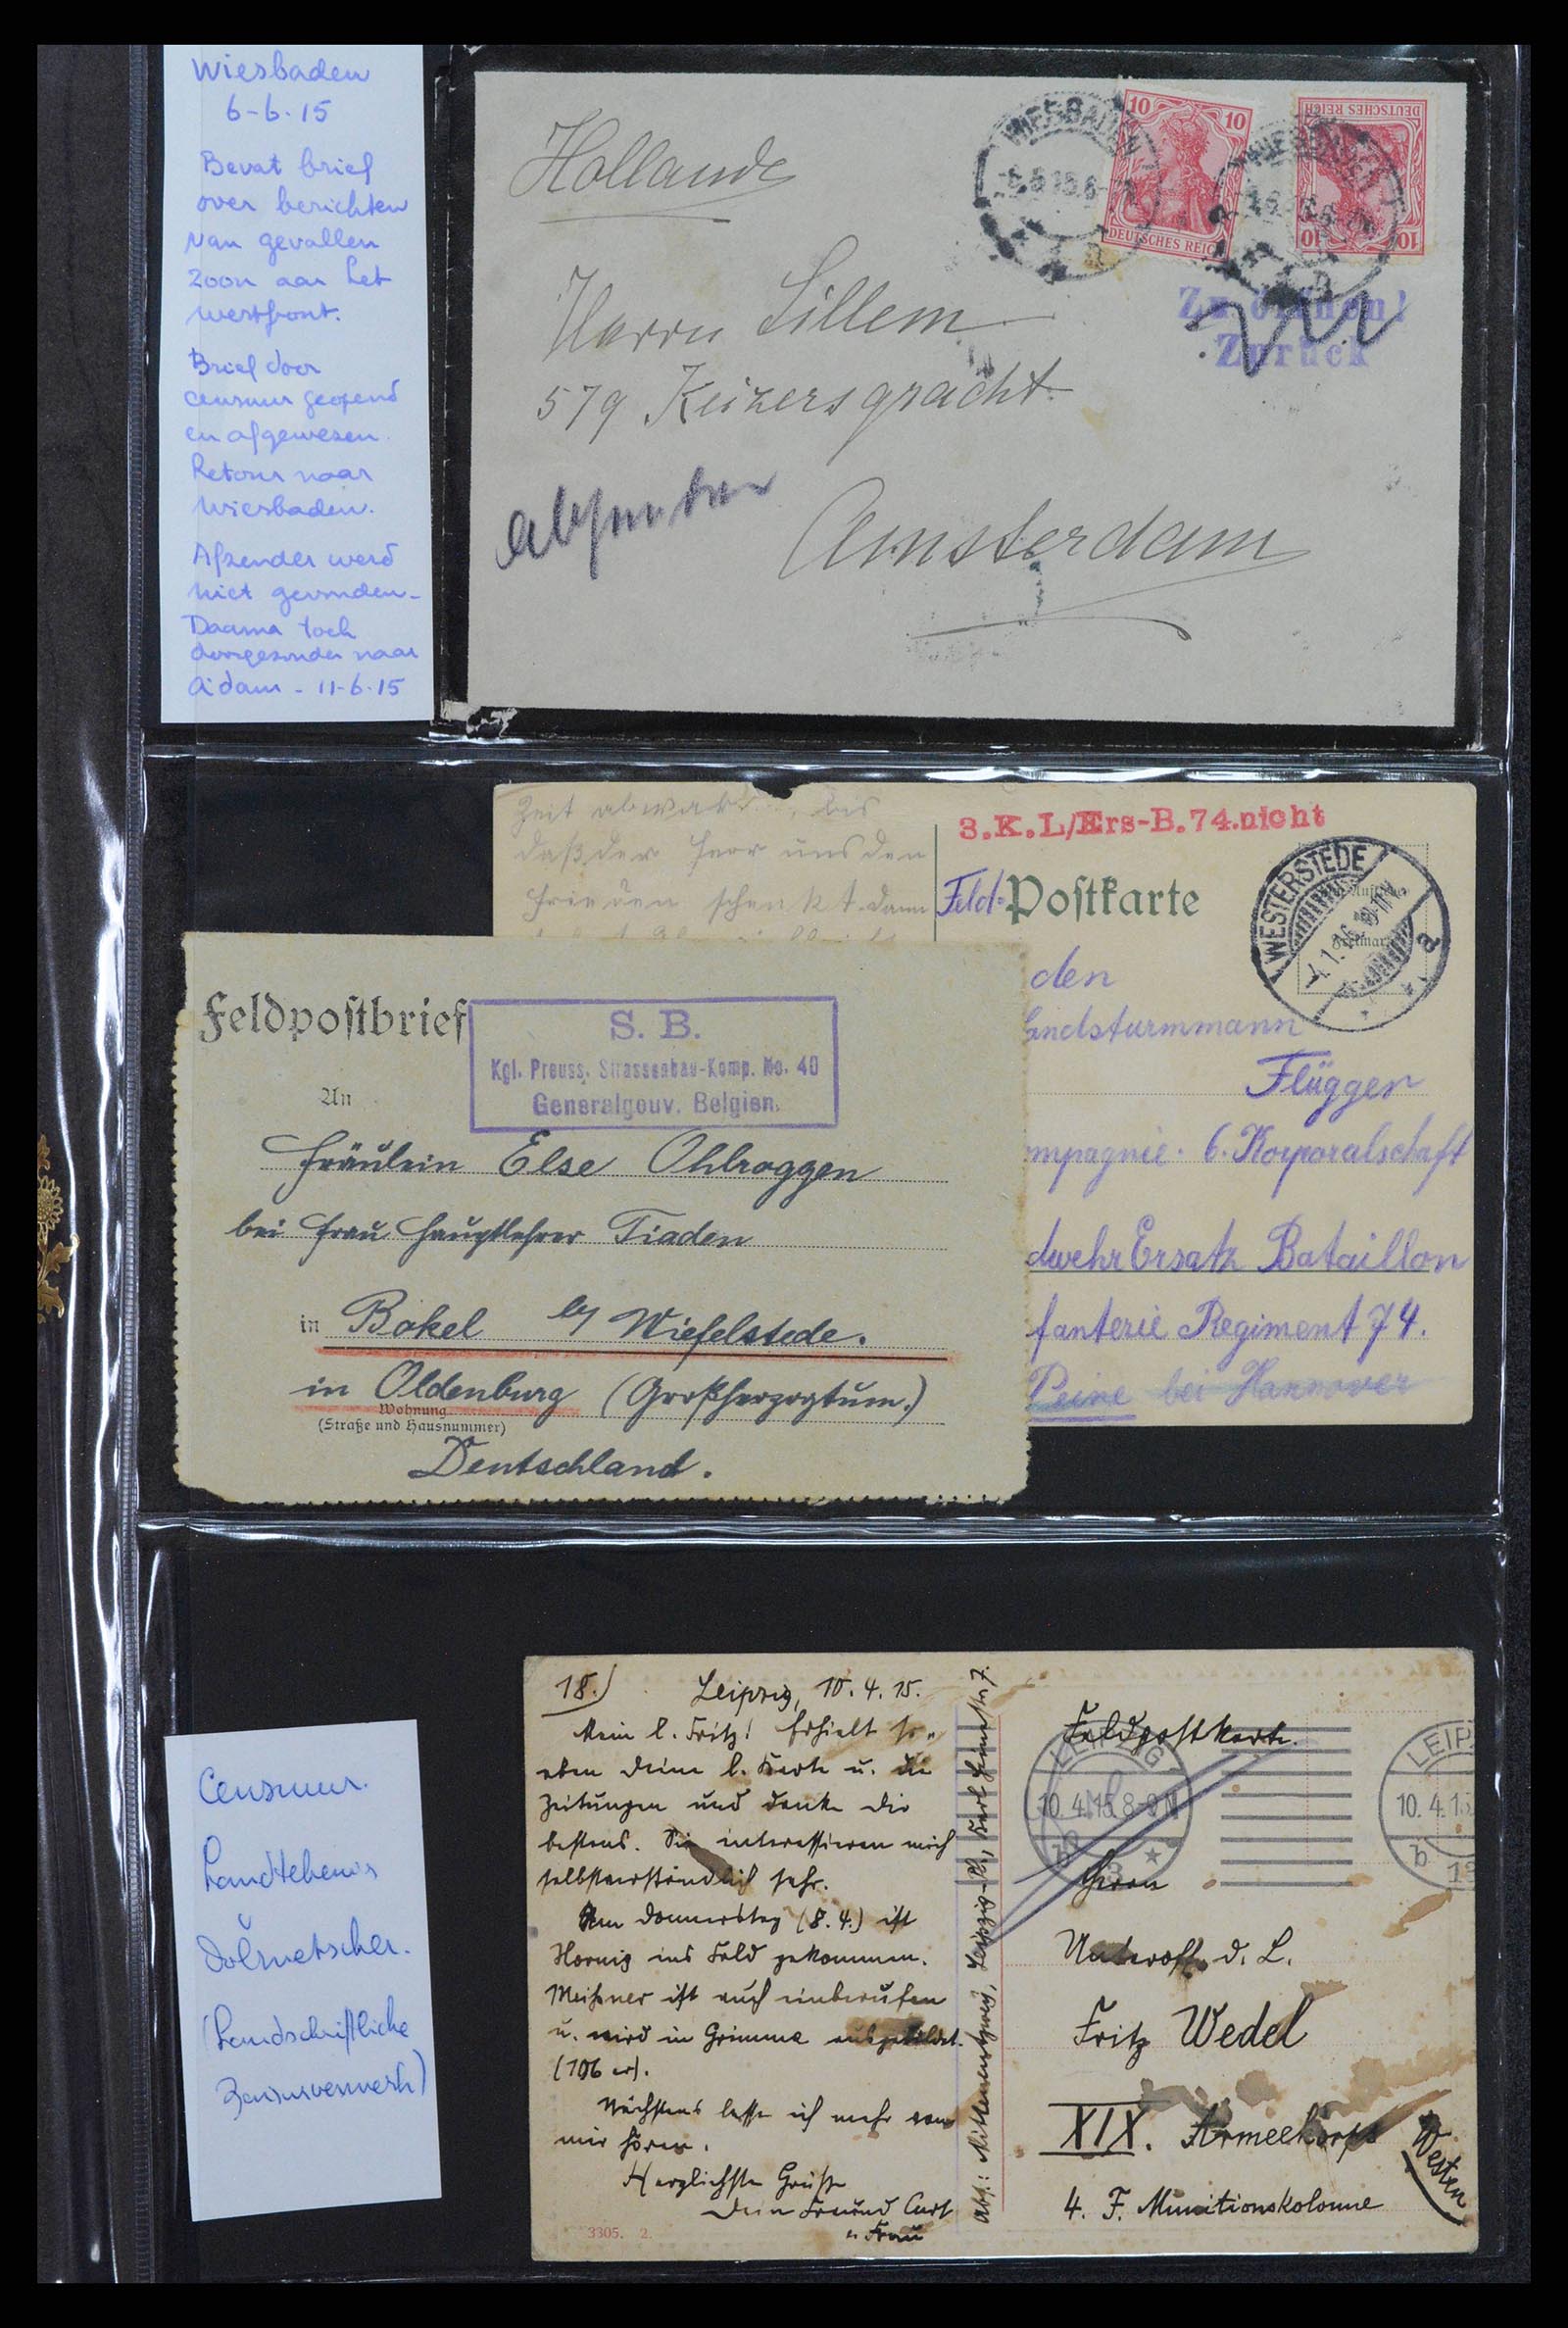 Wiesbaden
6-6-15
Bevat brief
over berichten
van gevallen
zoon aan het
westfront.
Brief door
censuur geopend
en afgewezen.
Retour naar
Wiesbaden.
Afzender werd
niet gevonden-
Daarna toch
doorgezonden naar
A'dam - 11-6-15
Hollande
Herrn Lillem
579 Keizersgracht
Amsterdam
WIESBADEN
10 10
DEUTSCHES REICH
DEUTSCHES REICH
10 10
Zu öffnen!
Zurück
Zeit abwarten, bis
daß der Herr uns den
Frieden schenkt. Dann
3.K.L/Ers-B.74.nicht
Feld-Postkarte
WESTERSTEDE
a
den
Landsturmmann
Flügger
mpagnie. 6. Korporalschaft
dwehr Ersatz Bataillon
fanterie Regiment 74.
Peine bei Hannover
Feldpostbrief
S. B.
Kgl. Preuss. Strassenbau-Komp. No. 40
Generalgouv. Belgien.
An
Fräulein Else Ohlroggen
bei Frau Hauptlehrer Tiaden
in Bokel by Wiefelstede.
in Oldenburg (Großherzogtum.)
Wohnung
(Straße und Hausnummer)
Deutschland.
Censuur.
Dolmetscher.
(Handschriftliche
Zensurvermerk)
18.) Leipzig, 10. 4. 15.
Mein l. Fritz! Erhielt so-
eben Deine l. Karte u. die
Zeitungen und danke Dir
bestens. Sie interessieren mich
selbstverständlich sehr.
Am Donnerstag (8. 4.) ist
Hornig ins Feld gekommen.
Meißner ist auch einberufen
u. wird in Grimma ausgebildet.
(106 er).
Nächstens lasse ich mehr von
mir hören.
Herzlichste Grüße
Dein Freund Curt
u. Frau
3305. 2.
Feldpostkarte.
LEIPZIG
10. 4. 15. 8-9 N
LEIP
10. 4. 15
b
Herrn
Unteroff. d. L.
Fritz Wedel
XIX. Armeekorps
Westen
4. F. Munitionskolonne